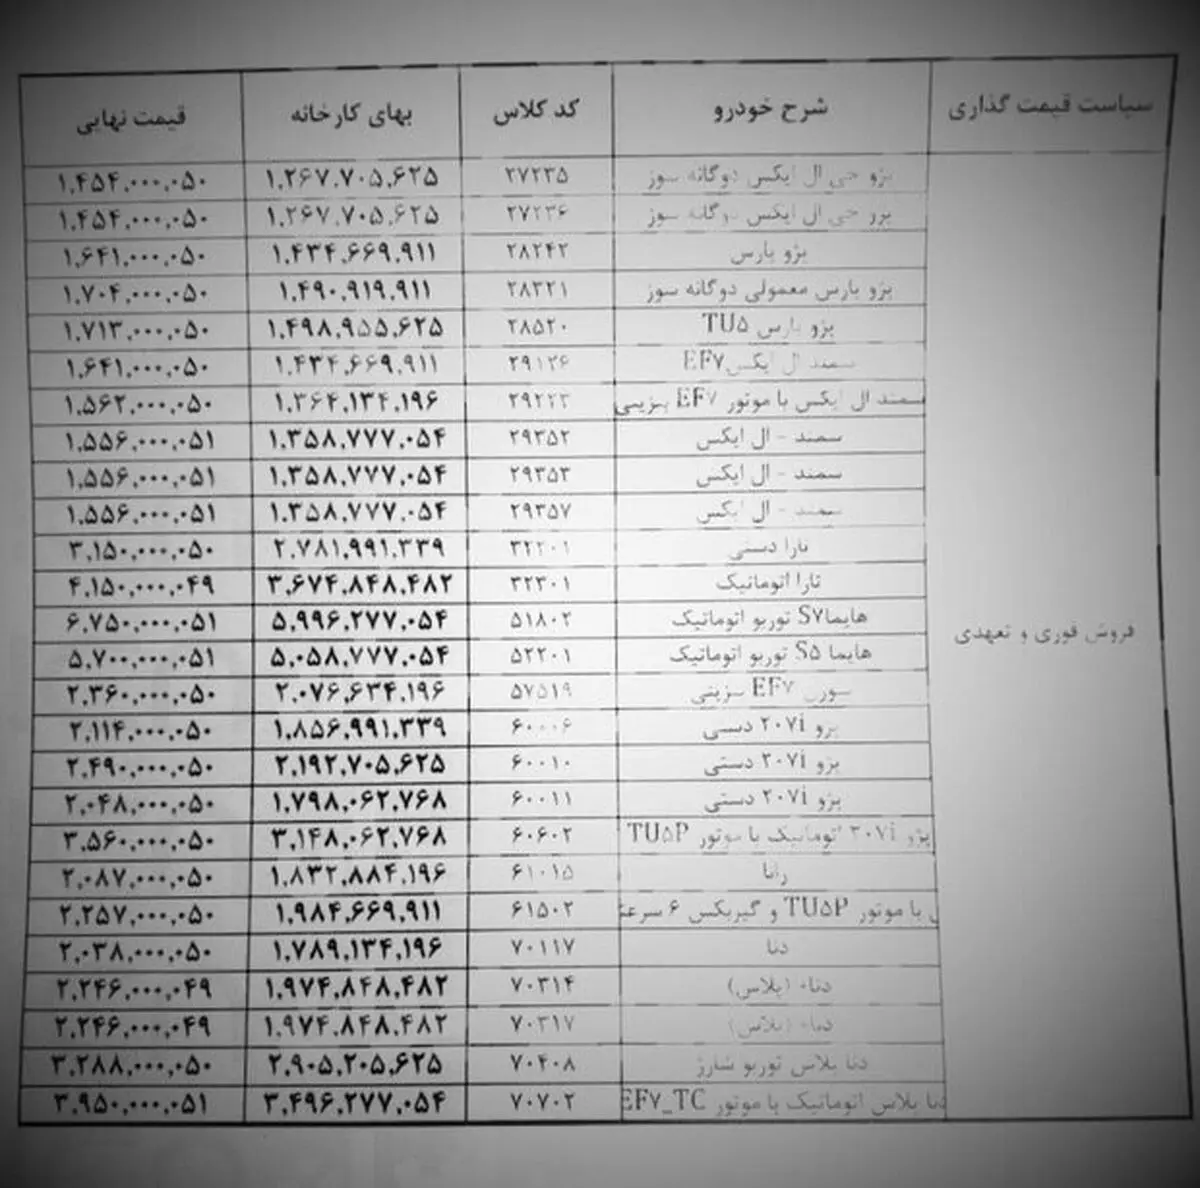 سیاست قیمت گذاری شرح خودرو کد کلاس بهای کارخانه قیمت نهایی
پژو جی ال ایکس دوگانه سوز ۲۷۲۳۵ ۱,۲۶۷,۷۰۵,۶۲۵ ۱,۴۵۴,۰۰۰,۰۵۰
پژو جی ال ایکس دوگانه سوز ۲۷۲۳۶ ۱,۲۶۷,۷۰۵,۶۲۵ ۱,۴۵۴,۰۰۰,۰۵۰
پژو پارس ۲۸۲۴۲ ۱,۴۳۴,۶۶۹,۹۱۱ ۱,۶۴۱,۰۰۰,۰۵۰
پژو پارس معمولی دوگانه سوز ۲۸۳۲۱ ۱,۴۹۰,۹۱۹,۹۱۱ ۱,۷۰۴,۰۰۰,۰۵۰
پژو پارس TU۵ ۲۸۵۲۰ ۱,۴۹۸,۹۵۵,۶۲۵ ۱,۷۱۳,۰۰۰,۰۵۰
سمند ال ایکس EF۷ ۲۹۱۲۶ ۱,۴۳۴,۶۶۹,۹۱۱ ۱,۶۴۱,۰۰۰,۰۵۰
سمند ال ایکس با موتور EF۷ بنزینی ۲۹۲۲۳ ۱,۳۶۴,۱۳۴,۱۹۶ ۱,۵۶۲,۰۰۰,۰۵۰
سمند - ال ایکس ۲۹۳۵۲ ۱,۳۵۸,۷۷۷,۰۵۴ ۱,۵۵۶,۰۰۰,۰۵۱
سمند - ال ایکس ۲۹۳۵۳ ۱,۳۵۸,۷۷۷,۰۵۴ ۱,۵۵۶,۰۰۰,۰۵۱
سمند - ال ایکس ۲۹۳۵۷ ۱,۳۵۸,۷۷۷,۰۵۴ ۱,۵۵۶,۰۰۰,۰۵۱
تارا دستی ۳۲۲۰۱ ۲,۷۸۱,۹۹۱,۳۳۹ ۳,۱۵۰,۰۰۰,۰۵۰
تارا اتوماتیک ۳۲۳۰۱ ۳,۶۷۴,۸۴۸,۴۸۲ ۴,۱۵۰,۰۰۰,۰۴۹
فروش فوری و تعهدی هایما S۷ توربو اتوماتیک ۵۱۸۰۲ ۵,۹۹۶,۲۷۷,۰۵۴ ۶,۷۵۰,۰۰۰,۰۵۱
هایما S۵ توربو اتوماتیک ۵۲۲۰۱ ۵,۰۵۸,۷۷۷,۰۵۴ ۵,۷۰۰,۰۰۰,۰۵۱
سورن EF۷ بنزینی ۵۷۵۱۹ ۲,۰۷۶,۶۳۴,۱۹۶ ۲,۳۶۰,۰۰۰,۰۵۰
پژو ۲۰۷i دستی ۶۰۰۰۶ ۱,۸۵۶,۹۹۱,۳۳۹ ۲,۱۱۴,۰۰۰,۰۵۰
پژو ۲۰۷i دستی ۶۰۰۱۰ ۲,۱۹۲,۷۰۵,۶۲۵ ۲,۴۹۰,۰۰۰,۰۵۰
پژو ۲۰۷i دستی ۶۰۰۱۱ ۱,۷۹۸,۰۶۲,۷۶۸ ۲,۰۴۸,۰۰۰,۰۵۰
پژو ۲۰۷i اتوماتیک با موتور TU۵P ۶۰۶۰۲ ۳,۱۴۸,۰۶۲,۷۶۸ ۳,۵۶۰,۰۰۰,۰۵۰
رانا ۶۱۰۱۵ ۱,۸۳۲,۸۸۴,۱۹۶ ۲,۰۸۷,۰۰۰,۰۵۰
با موتور TU۵P و گیربکس ۶ سرعته ۶۱۵۰۲ ۱,۹۸۴,۶۶۹,۹۱۱ ۲,۲۵۷,۰۰۰,۰۵۰
دنا ۷۰۱۱۷ ۱,۷۸۹,۱۳۴,۱۹۶ ۲,۰۳۸,۰۰۰,۰۵۰
دنا+ (پلاس) ۷۰۳۱۴ ۱,۹۷۴,۸۴۸,۴۸۲ ۲,۲۴۶,۰۰۰,۰۴۹
دنا+ (پلاس) ۷۰۳۱۷ ۱,۹۷۴,۸۴۸,۴۸۲ ۲,۲۴۶,۰۰۰,۰۴۹
دنا پلاس توربو شارژ ۷۰۴۰۸ ۲,۹۰۵,۲۰۵,۶۲۵ ۳,۲۸۸,۰۰۰,۰۵۰
دنا پلاس اتوماتیک با موتور EF۷_TC ۷۰۷۰۲ ۳,۴۹۶,۲۷۷,۰۵۴ ۳,۹۵۰,۰۰۰,۰۵۱